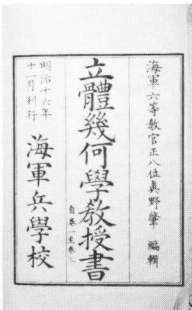 海軍六等教官正八位真野肇 編輯
立體幾何學教授書
自第一至卷八
明治十六年
十一月刊行
海軍兵學校